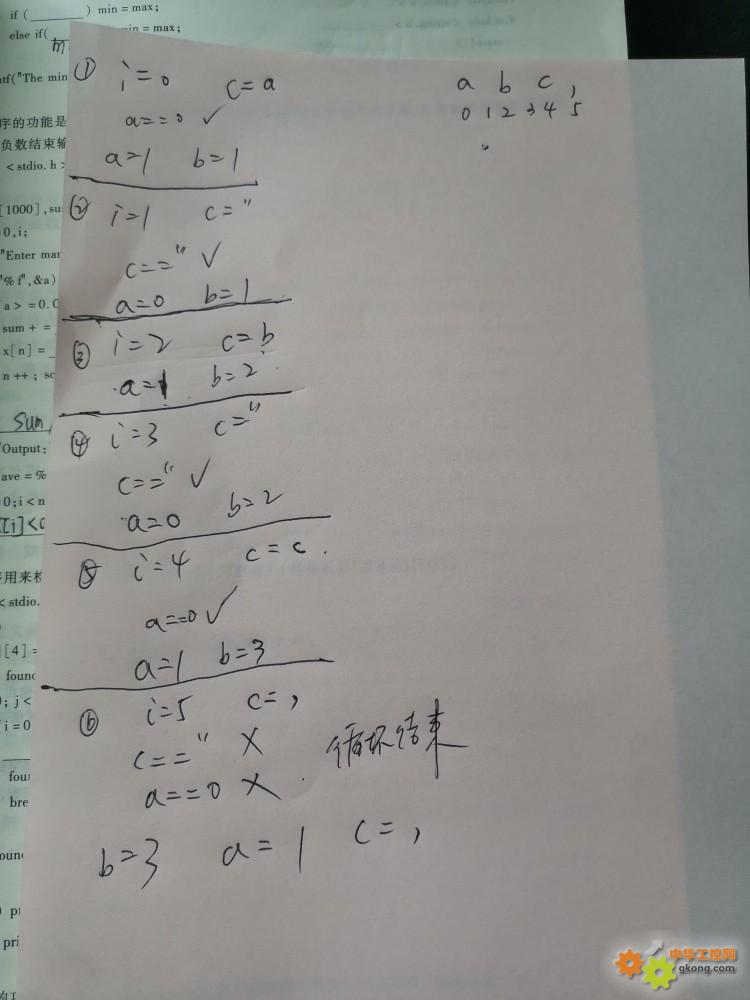 if (________) min = max;
else if(
min = max;
ntf("The min
序的功能是
负数结束输
< stdio. h >
[1000],su
=0,i;
"Enter mar
"% f",&a)
a > =0.0
sum + =
x[n] =
n ++ ; sc
sum
"Output:
ave = %
0;i < n
[i]<
用来检
< stdio.
[4] =
found
; j <
i = 0
fou
bre
oun
) pr
pri
① i=0 c=a
a==0 ✓
a=1 b=1
② i=1 c="
c==" ✓
a=0 b=1
③ i=2 c=b
a=1 b=2
④ i=3 c="
c==" ✓
a=0 b=2
⑤ i=4 c=c.
a==0 ✓
a=1 b=3
⑥ i=5 c=,
c==" X
a==0 X
循环结束
b=3 a=1 c=,
a b c ,
0 1 2 3 4 5
中华工控网
gkong.com